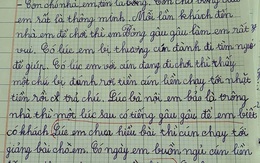 Con chó nhà em tên là bông. Con chó bông của
em rất là thông minh. Mỗi lần khách đến
nhà em để chơi thì em bông gâu gâu làm em rất
vui. Có lúc em bị thương cún đành đi tìm người
để giúp. Có lúc em với cún đang đi chơi thì thấy
một chú bị đánh rơi tiền cún liền chạy tới nhặt
tiền rồi trả chú. Lúc bà nội em bảo là trông
nhà thì một lúc sau có tiếng gâu gâu để em biết
có khách. Lúc em chưa hiểu bài thì cún chạy tới
giảng bài cho em. Có ngày em buồn ngủ cún liền